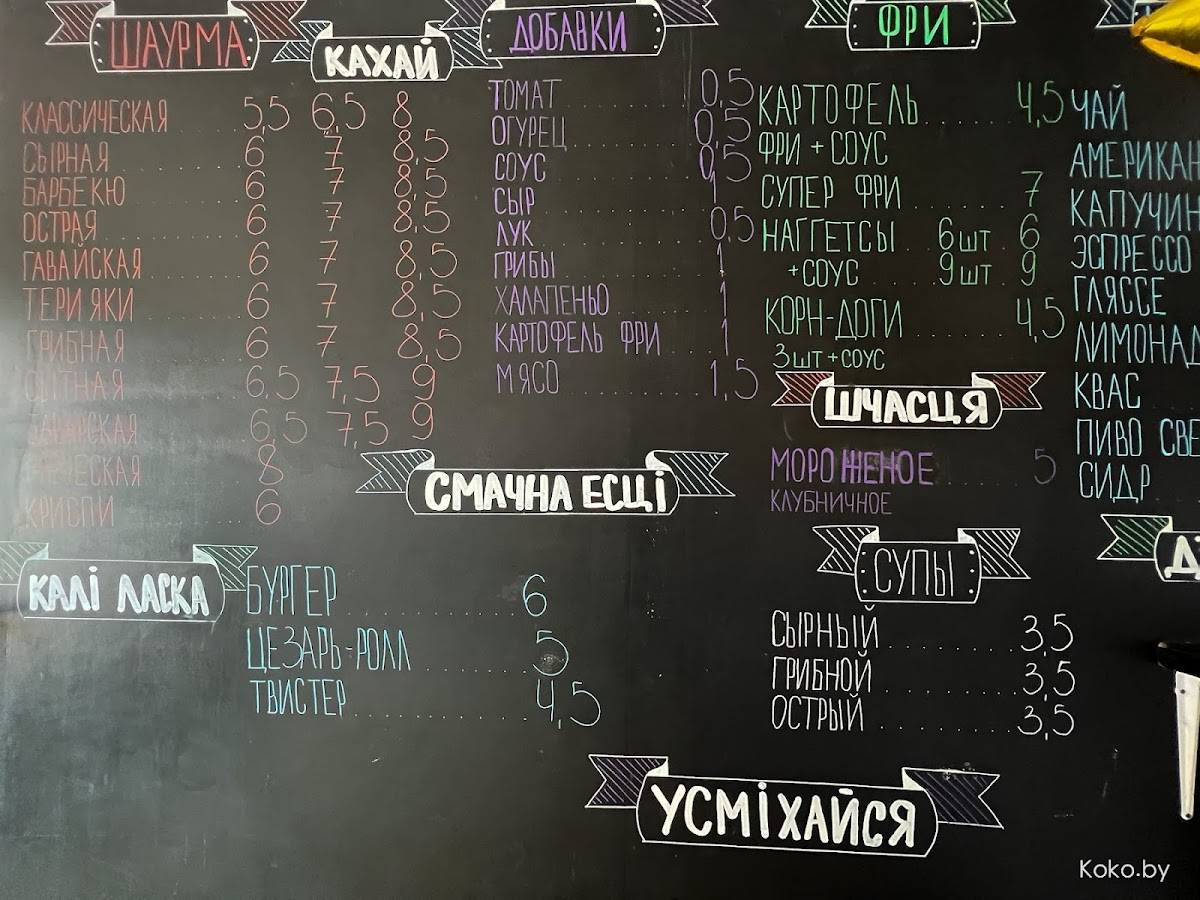 ШАУРМА
КАХАЙ
КЛАССИЧЕСКАЯ 5,5 6,5 8
СЫРНАЯ 6 7 8,5
БАРБЕКЮ 6 7 8,5
ОСТРАЯ 6 7 8,5
ГАВАЙСКАЯ 6 7 8,5
ТЕРИЯКИ 6 7 8,5
ГРИБНАЯ 6 7 8,5
СЫТНАЯ 6,5 7,5 9
6,5 7,5 9
8
КРИСПИ 6
ДОБАВКИ
ТОМАТ 0,5
ОГУРЕЦ 0,5
СОУС 0,5
СЫР 1
ЛУК 0,5
ГРИБЫ 1
ХАЛАПЕНЬО 1
КАРТОФЕЛЬ ФРИ 1
МЯСО 1,5
ФРИ
КАРТОФЕЛЬ 4,5
ФРИ + СОУС
СУПЕР ФРИ 7
НАГГЕТСЫ 6 шт 6
+ СОУС 9 шт 9
КОРН-ДОГИ 4,5
3 шт + СОУС
ШЧАСЦЯ
МОРОЖЕНОЕ 5
КЛУБНИЧНОЕ
ЧАЙ
АМЕРИКАН
КАПУЧИН
ЭСПРЕССО
ГЛЯССЕ
ЛИМОНАД
КВАС
ПИВО СВЕ
СИДР
СМАЧНА ЕСЦІ
КАЛІ ЛАСКА
БУРГЕР 6
ЦЕЗАРЬ-РОЛЛ 5
ТВИСТЕР 4,5
СУПЫ
СЫРНЫЙ 3,5
ГРИБНОЙ 3,5
ОСТРЫЙ 3,5
УСМІХАЙСЯ
Koko.by